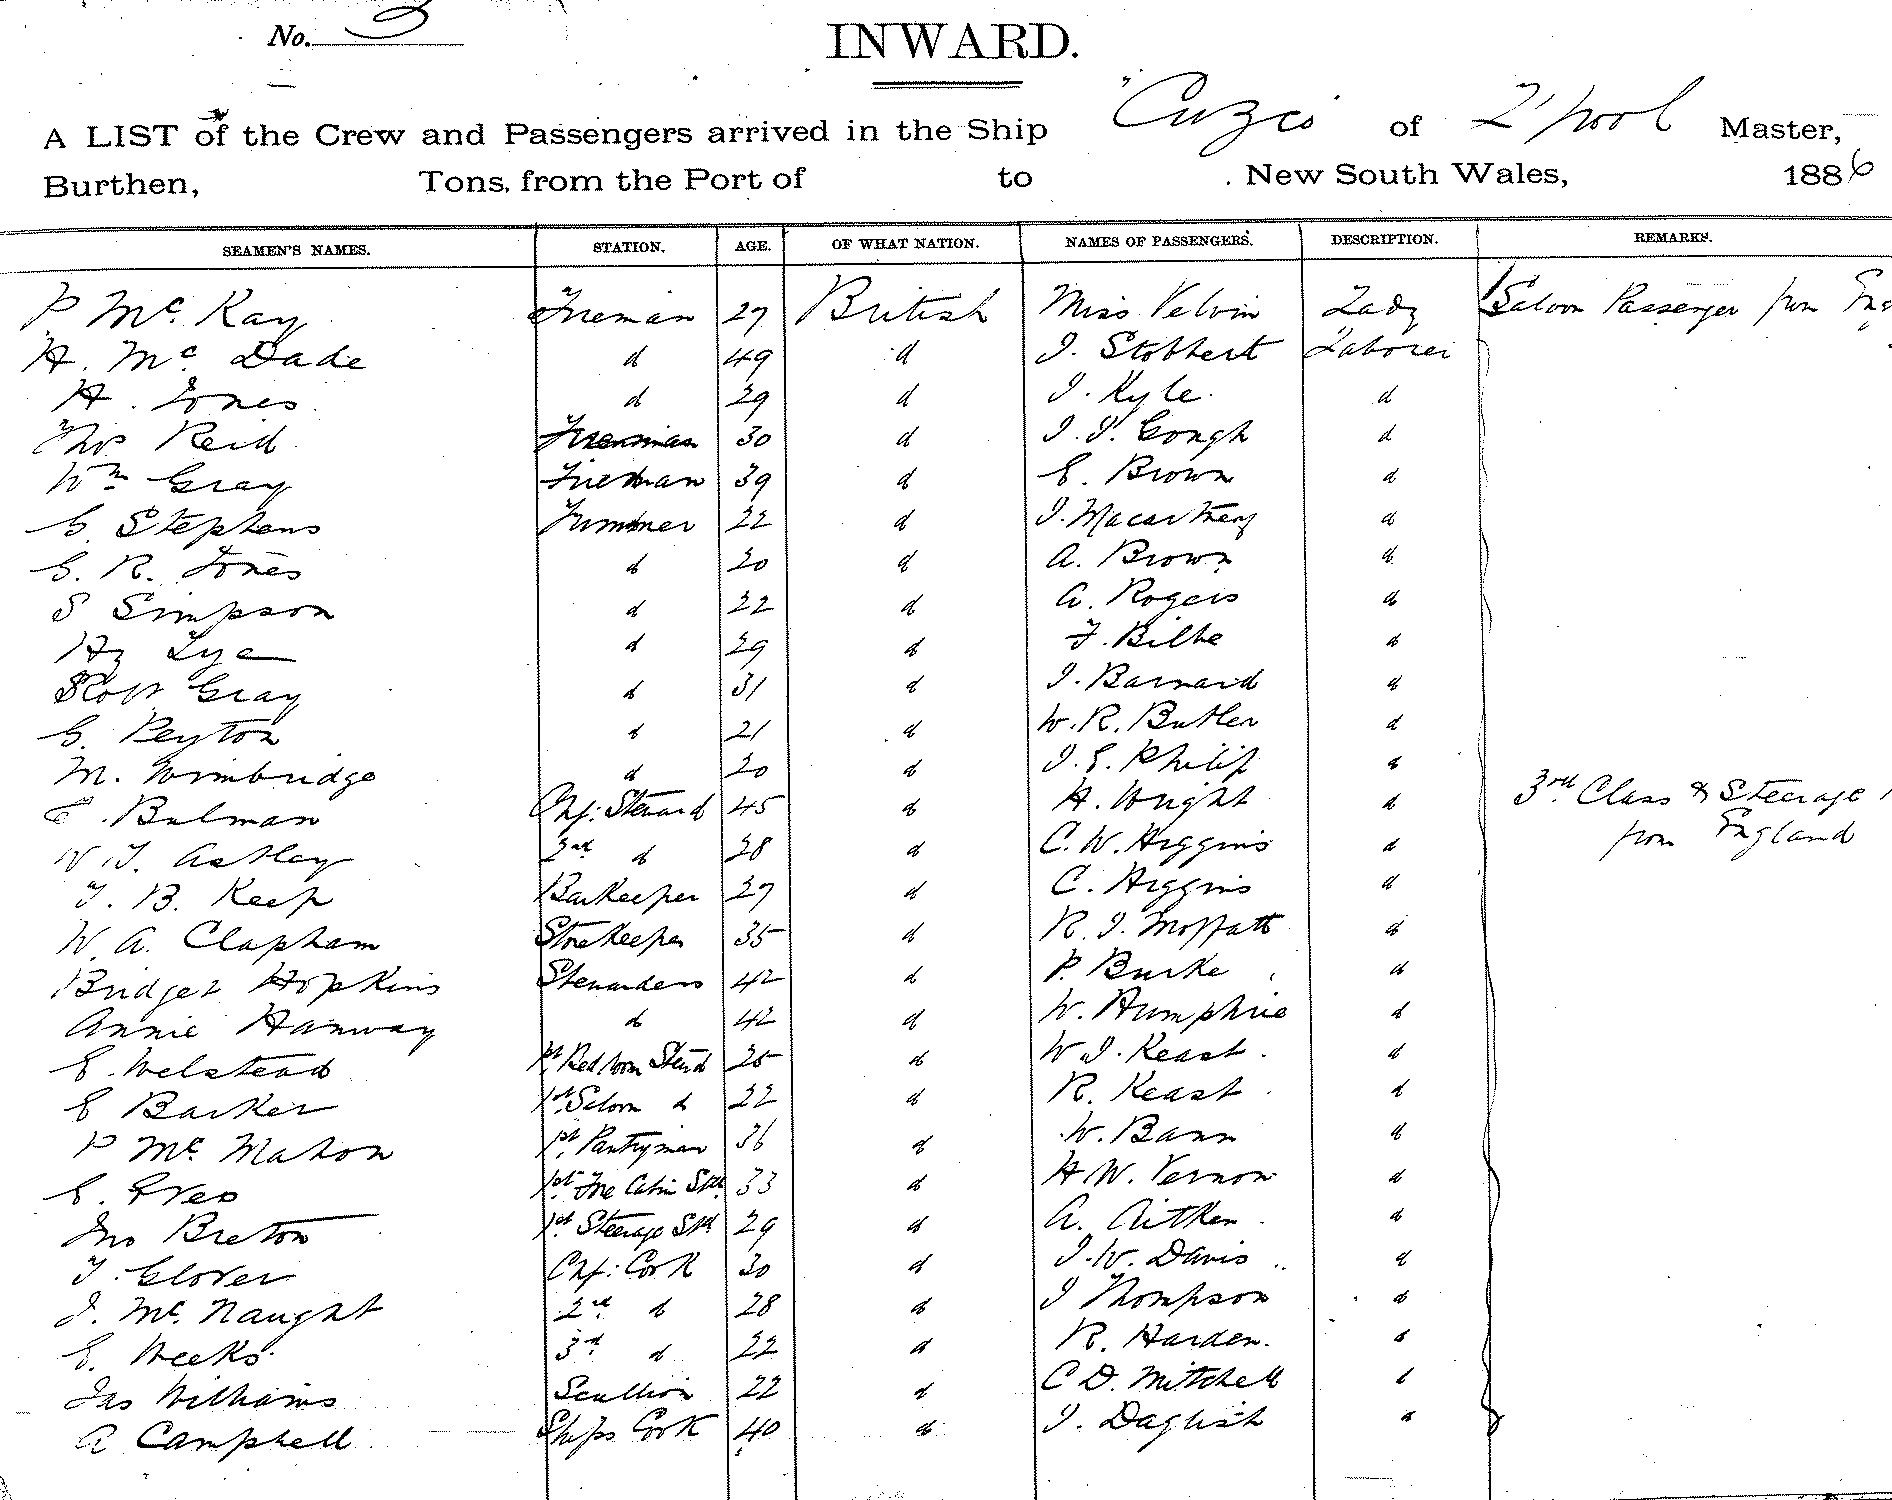 No. 3
INWARD.
A LIST of the Crew and Passengers arrived in the Ship "Cuzco of L'pool Master,
Burthen, Tons, from the Port of to New South Wales, 1886
SEAMEN'S NAMES. STATION. AGE. OF WHAT NATION. NAMES OF PASSENGERS. DESCRIPTION. REMARKS.
P Mc. Kay Fireman 27 British Miss Velvin Lady Saloon Passenger from Eng
H. Mc. Dade d 49 d J. Stobbert Laborer
H. Jones d 29 d J. Kyle. d
Thos Reid Fireman 30 d J. J. Gough d
Wm Gray Fireman 39 d E. Brown d
G. Stephens Trimmer 22 d J. Macartney d
G. R. Jones d 20 d A. Brown d
S Simpson d 22 d A. Rogers d
Hy Lye d 29 d F. Bilbe d
Robt Gray d 31 d J. Barnard d
G. Peyton d 21 d W. R. Butler d
M. Wimbridge d 20 d J. E. Philip d
Bulman Chf: Steward 45 d H. Wright d 3rd Class & Steerage
W. T. Astley 2nd d 28 d C. W. Higgins d from England
T. B. Keep Barkeeper 27 d C. Higgins d
W. A. Clapham Storekeeper 35 d R. J. Moffatt d
Bridget Hopkins Stewardess 42 d P. Burke d
Annie Hanway d 42 d W. Humphrie d
E. Welstead 1st Bedroom Stewd 25 d W. J. Keast. d
E Barker 1st Saloon d 22 d R. Keast d
P Mc. Mahon 1st Pantryman 36 d W. Bann d
E. Ives 1st Fre Cabin Std. 33 d H. W. Vernon d
Jno Breton 1st Steerage Std 29 d A. Aitken d
T. Glover Chf: Cook 30 d J. W. Davis d
J. Mc. Naught 2nd d 28 d J Thompson d
E. Weeks 3rd d 22 d R. Harden. d
Jas Williams Scullion 22 d C D. Mitchell d
A Campbell Ships Cook 40 d J. Daglish d